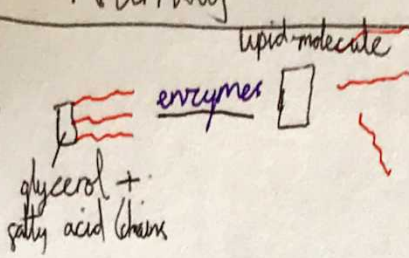 lipid molecule
enzymes
glycerol +
fatty acid chains